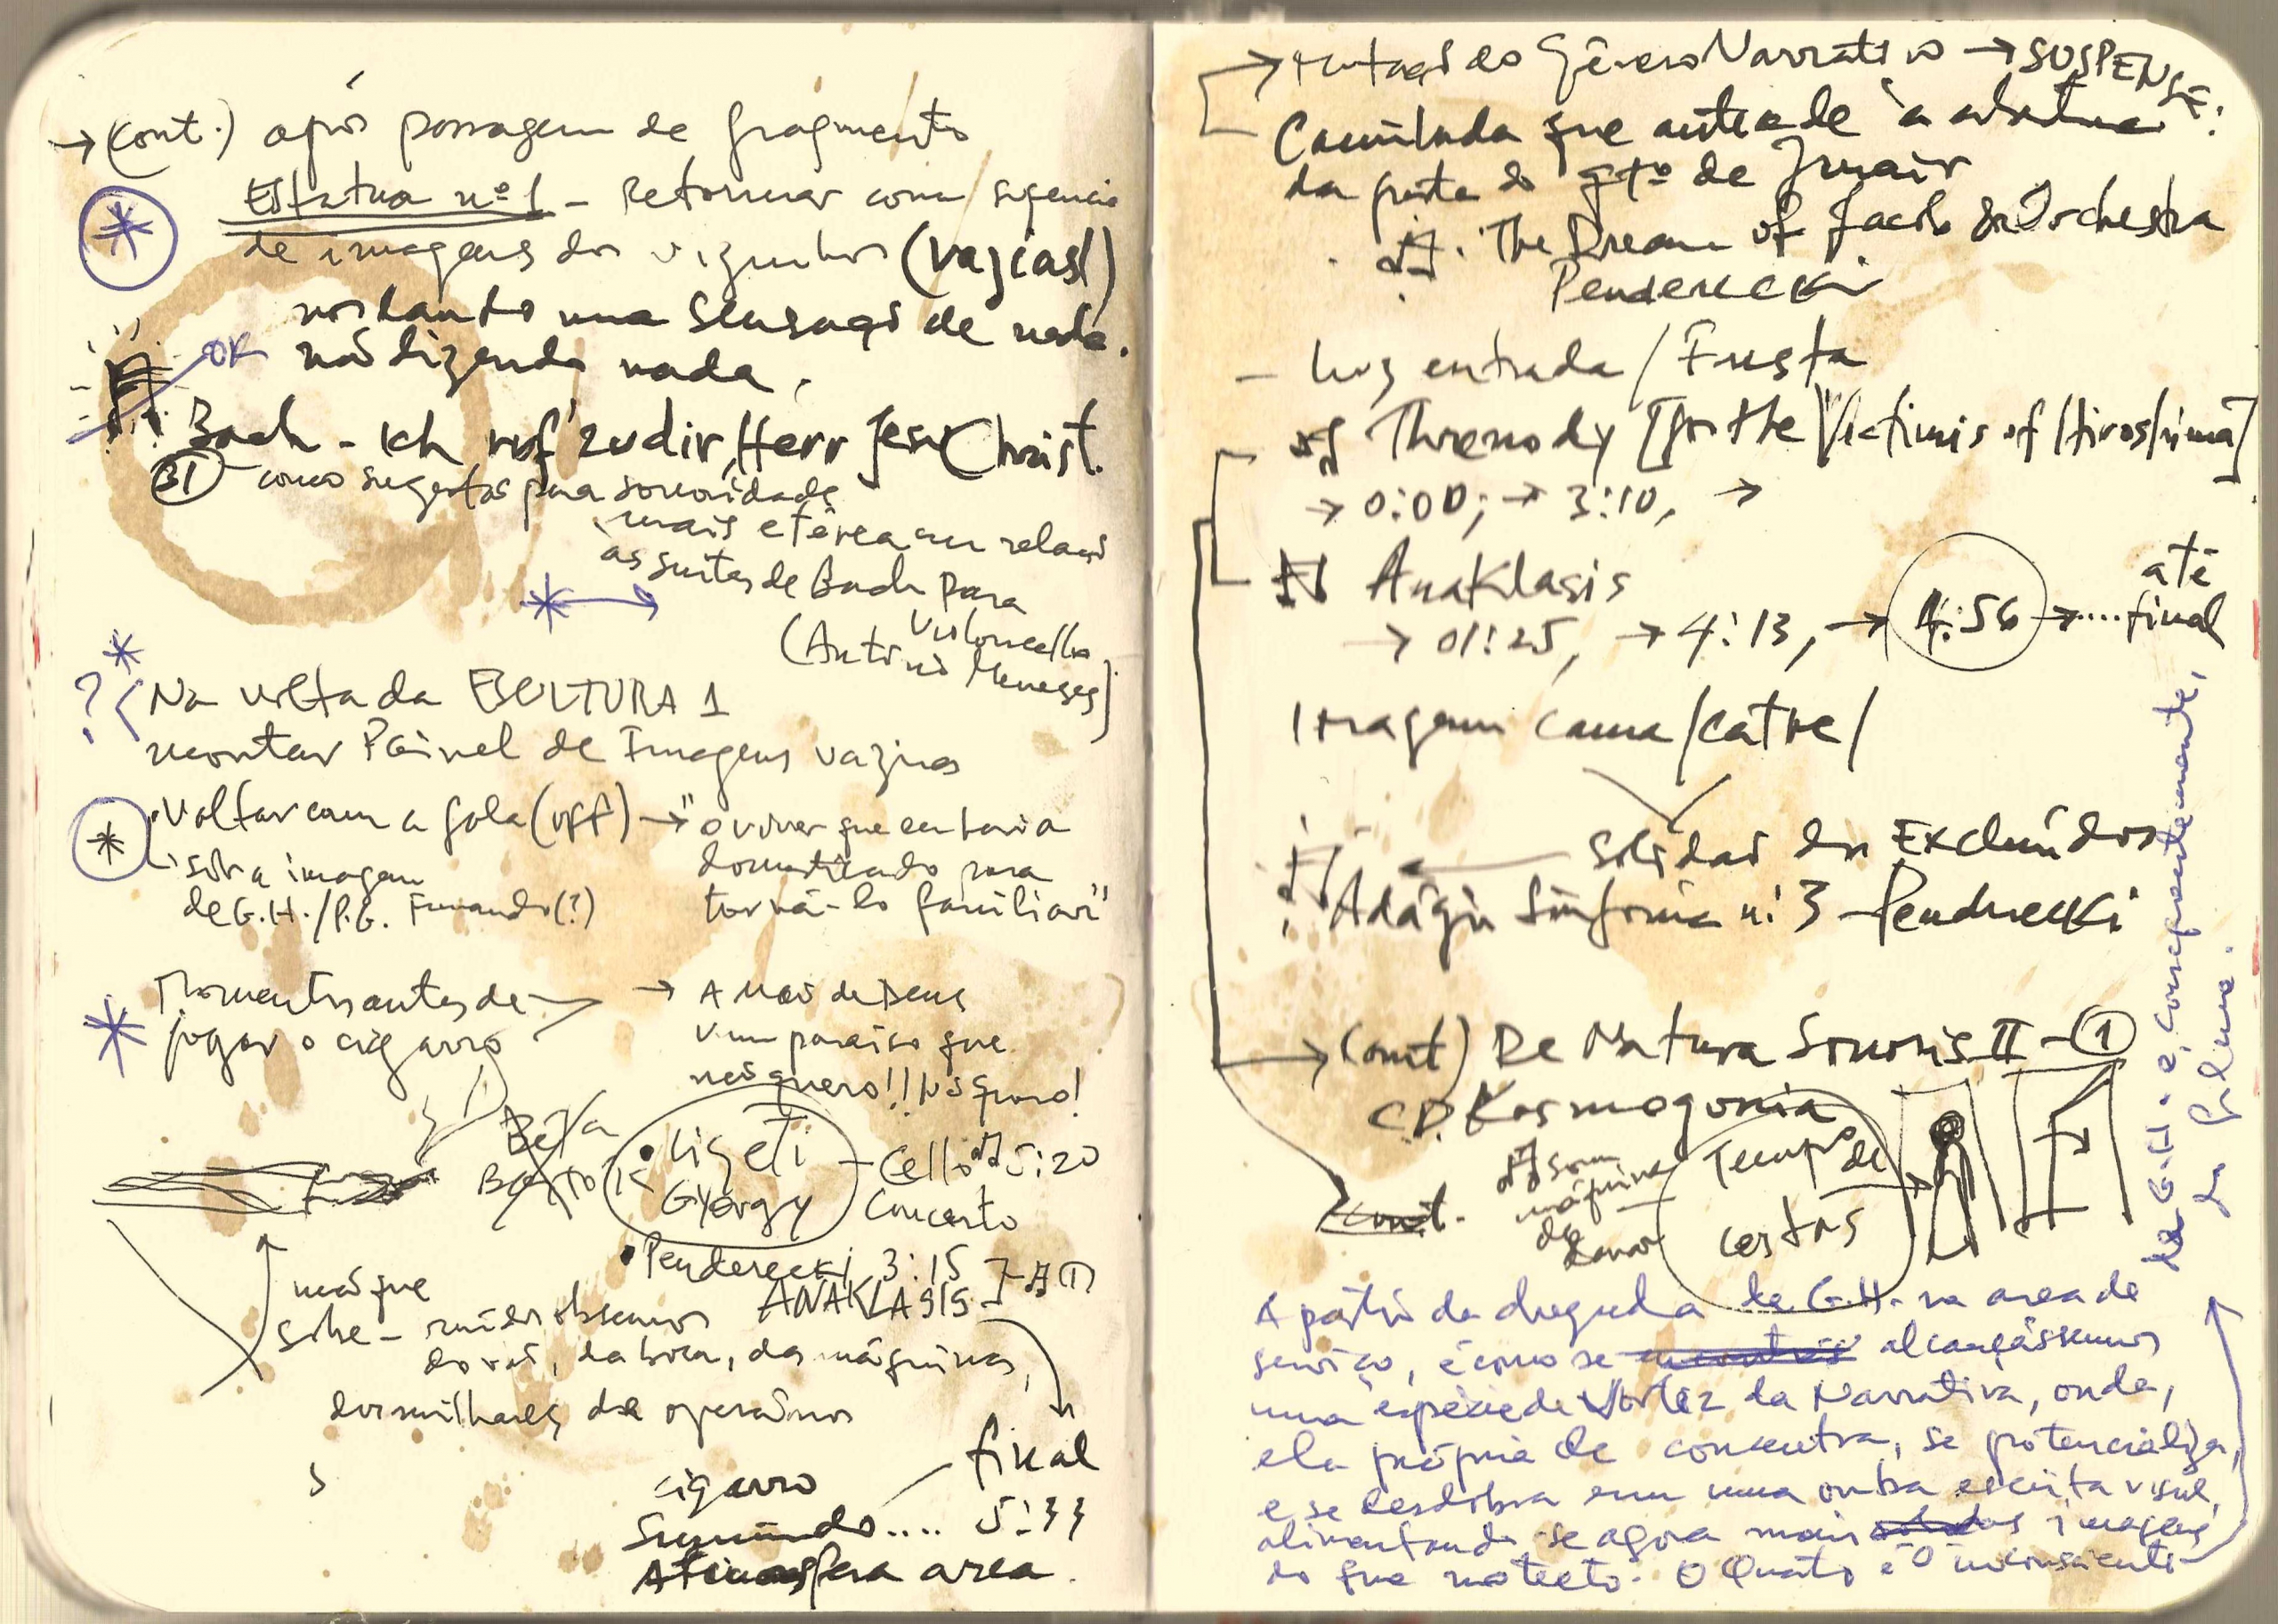 → (cont.) após passagem de fragmento
Estatua nº 1 - Retornar com
de imagens dos vizinhos (vazias!)
uma sensação de nada.
OK não dizendo nada.
Bach - Ich ruf' zu dir, Herr Jesu Christ.
31 - como para sonoridade
mais etérea em relação
às suites de Bach para
Violoncello
(Antonio Meneses)
? Na volta da ESCULTURA 1
montar Painel de Imagens vazias
Voltar com a fala (off) → "o viver que eu havia
domesticado para
torná-lo familiar"
sob a imagem
de G.H./P.G. Fumando (?)
Momentos antes de
jogar o cigarro
→ A mão de Deus
num paraíso que
não quero!! Não quero!
Béla
Bartok
Ligeti
György
- Cello 5:20
Concerto
Penderecki 3:15
ANAKLASIS
não que
sobe - ruídos
da boca, das máquinas,
dos milhares de operários
cigarro
Sumindo.... final
5:33
Atmosfera area.
→ do Gênero Narrativo → SUSPENSE:
Caminhada que antecede à abertura
da porta do qtº de Janair
The Dream of Jacob Orchestra
Penderecki
- Luz entrada / Fresta
Threnody [for the Victims of Hiroshima]
→ 0:00; → 3:10, →
Anaklasis
→ 01:25, → 4:13, → 4:56 → .... até
final
Imagem cama/catre/
Solidão dos Excluídos
Adágio Sinfonia nº 3 - Penderecki
→ (cont) De Natura Sonoris II - 1
CD. Kosmogonia
som
máquina
de
lavar
Tempo de
cont.
A partir da chegada de G.H. na area de
serviço, é como se alcançássemos
uma espécie de Vórtez da Narrativa, onde,
ela própria se concentra, se potencializa,
e se desdobra em uma outra escrita visual,
alimentando-se agora mais imagens
do que no texto. O Quarto é O inconsciente
de G.H. e, consequentemente,
do filme.